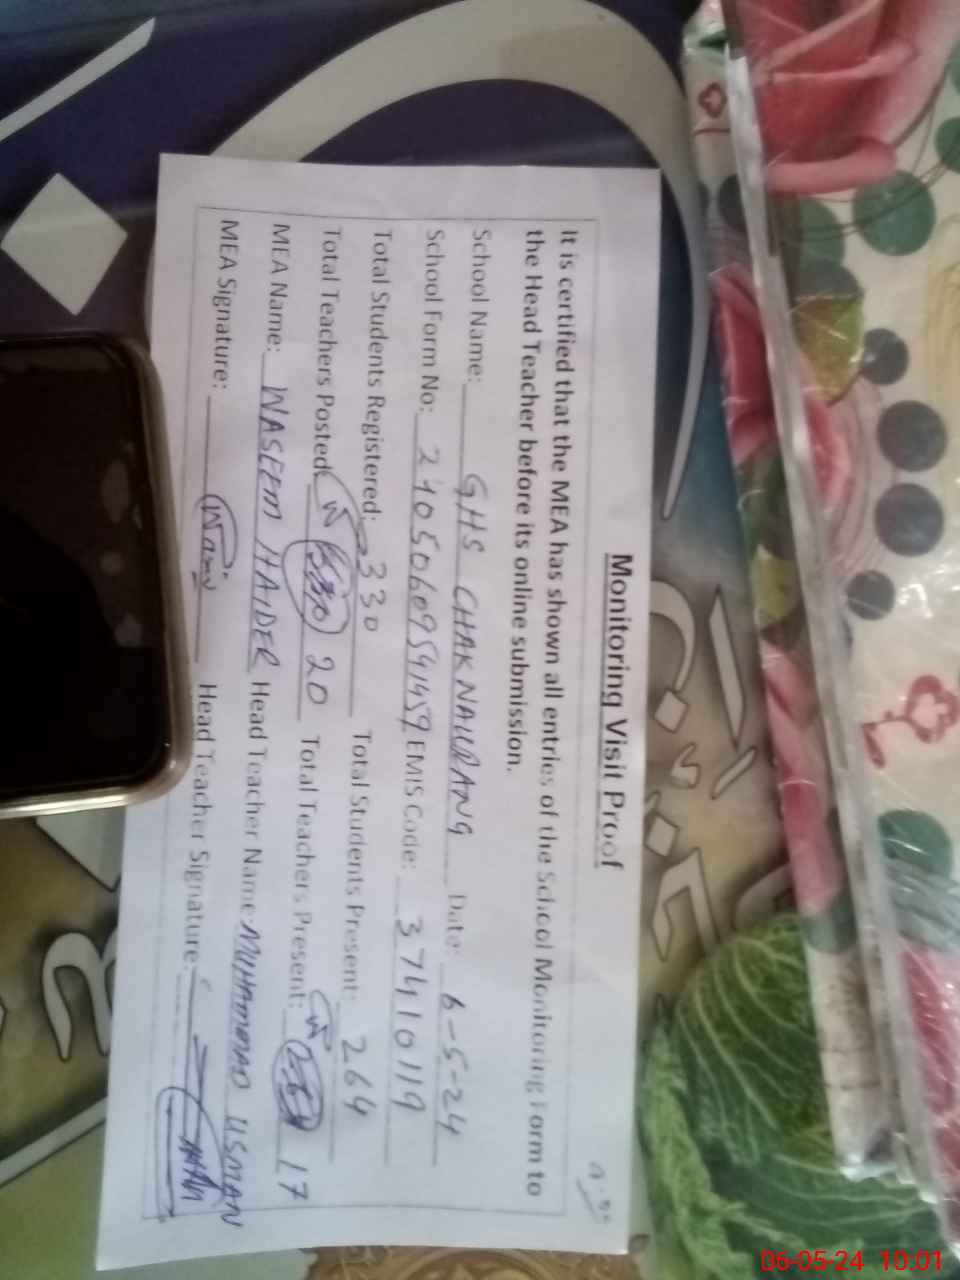 Monitoring Visit Proof
It is certified that the MEA has shown all entries of the School Monitoring Form to
the Head Teacher before its online submission.
School Name: GHS CHAK NAURANG Date: 6-5-24
School Form No: 24050609541459 EMIS Code: 37410119
Total Students Registered: 330 Total Students Present: 264
Total Teachers Posted: 20 Total Teachers Present: 17
MEA Name: WASEEM HAIDER Head Teacher Name: MUHAMMAD USMAN
MEA Signature: Head Teacher Signature:
06-05-24 10:01